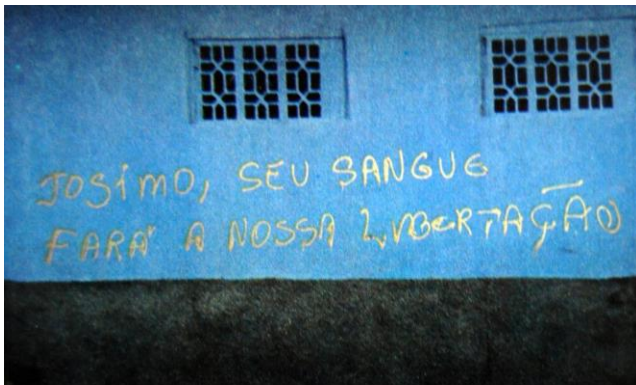 JOSIMO, SEU SANGUE
FARÁ A NOSSA LIBERTAÇÃO